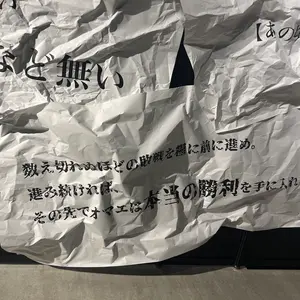 【あの
など無い
数え切れぬほどの敗戦を糧に前に進め。
進み続ければ、
その先でオマエは本当の勝利を手に入れ